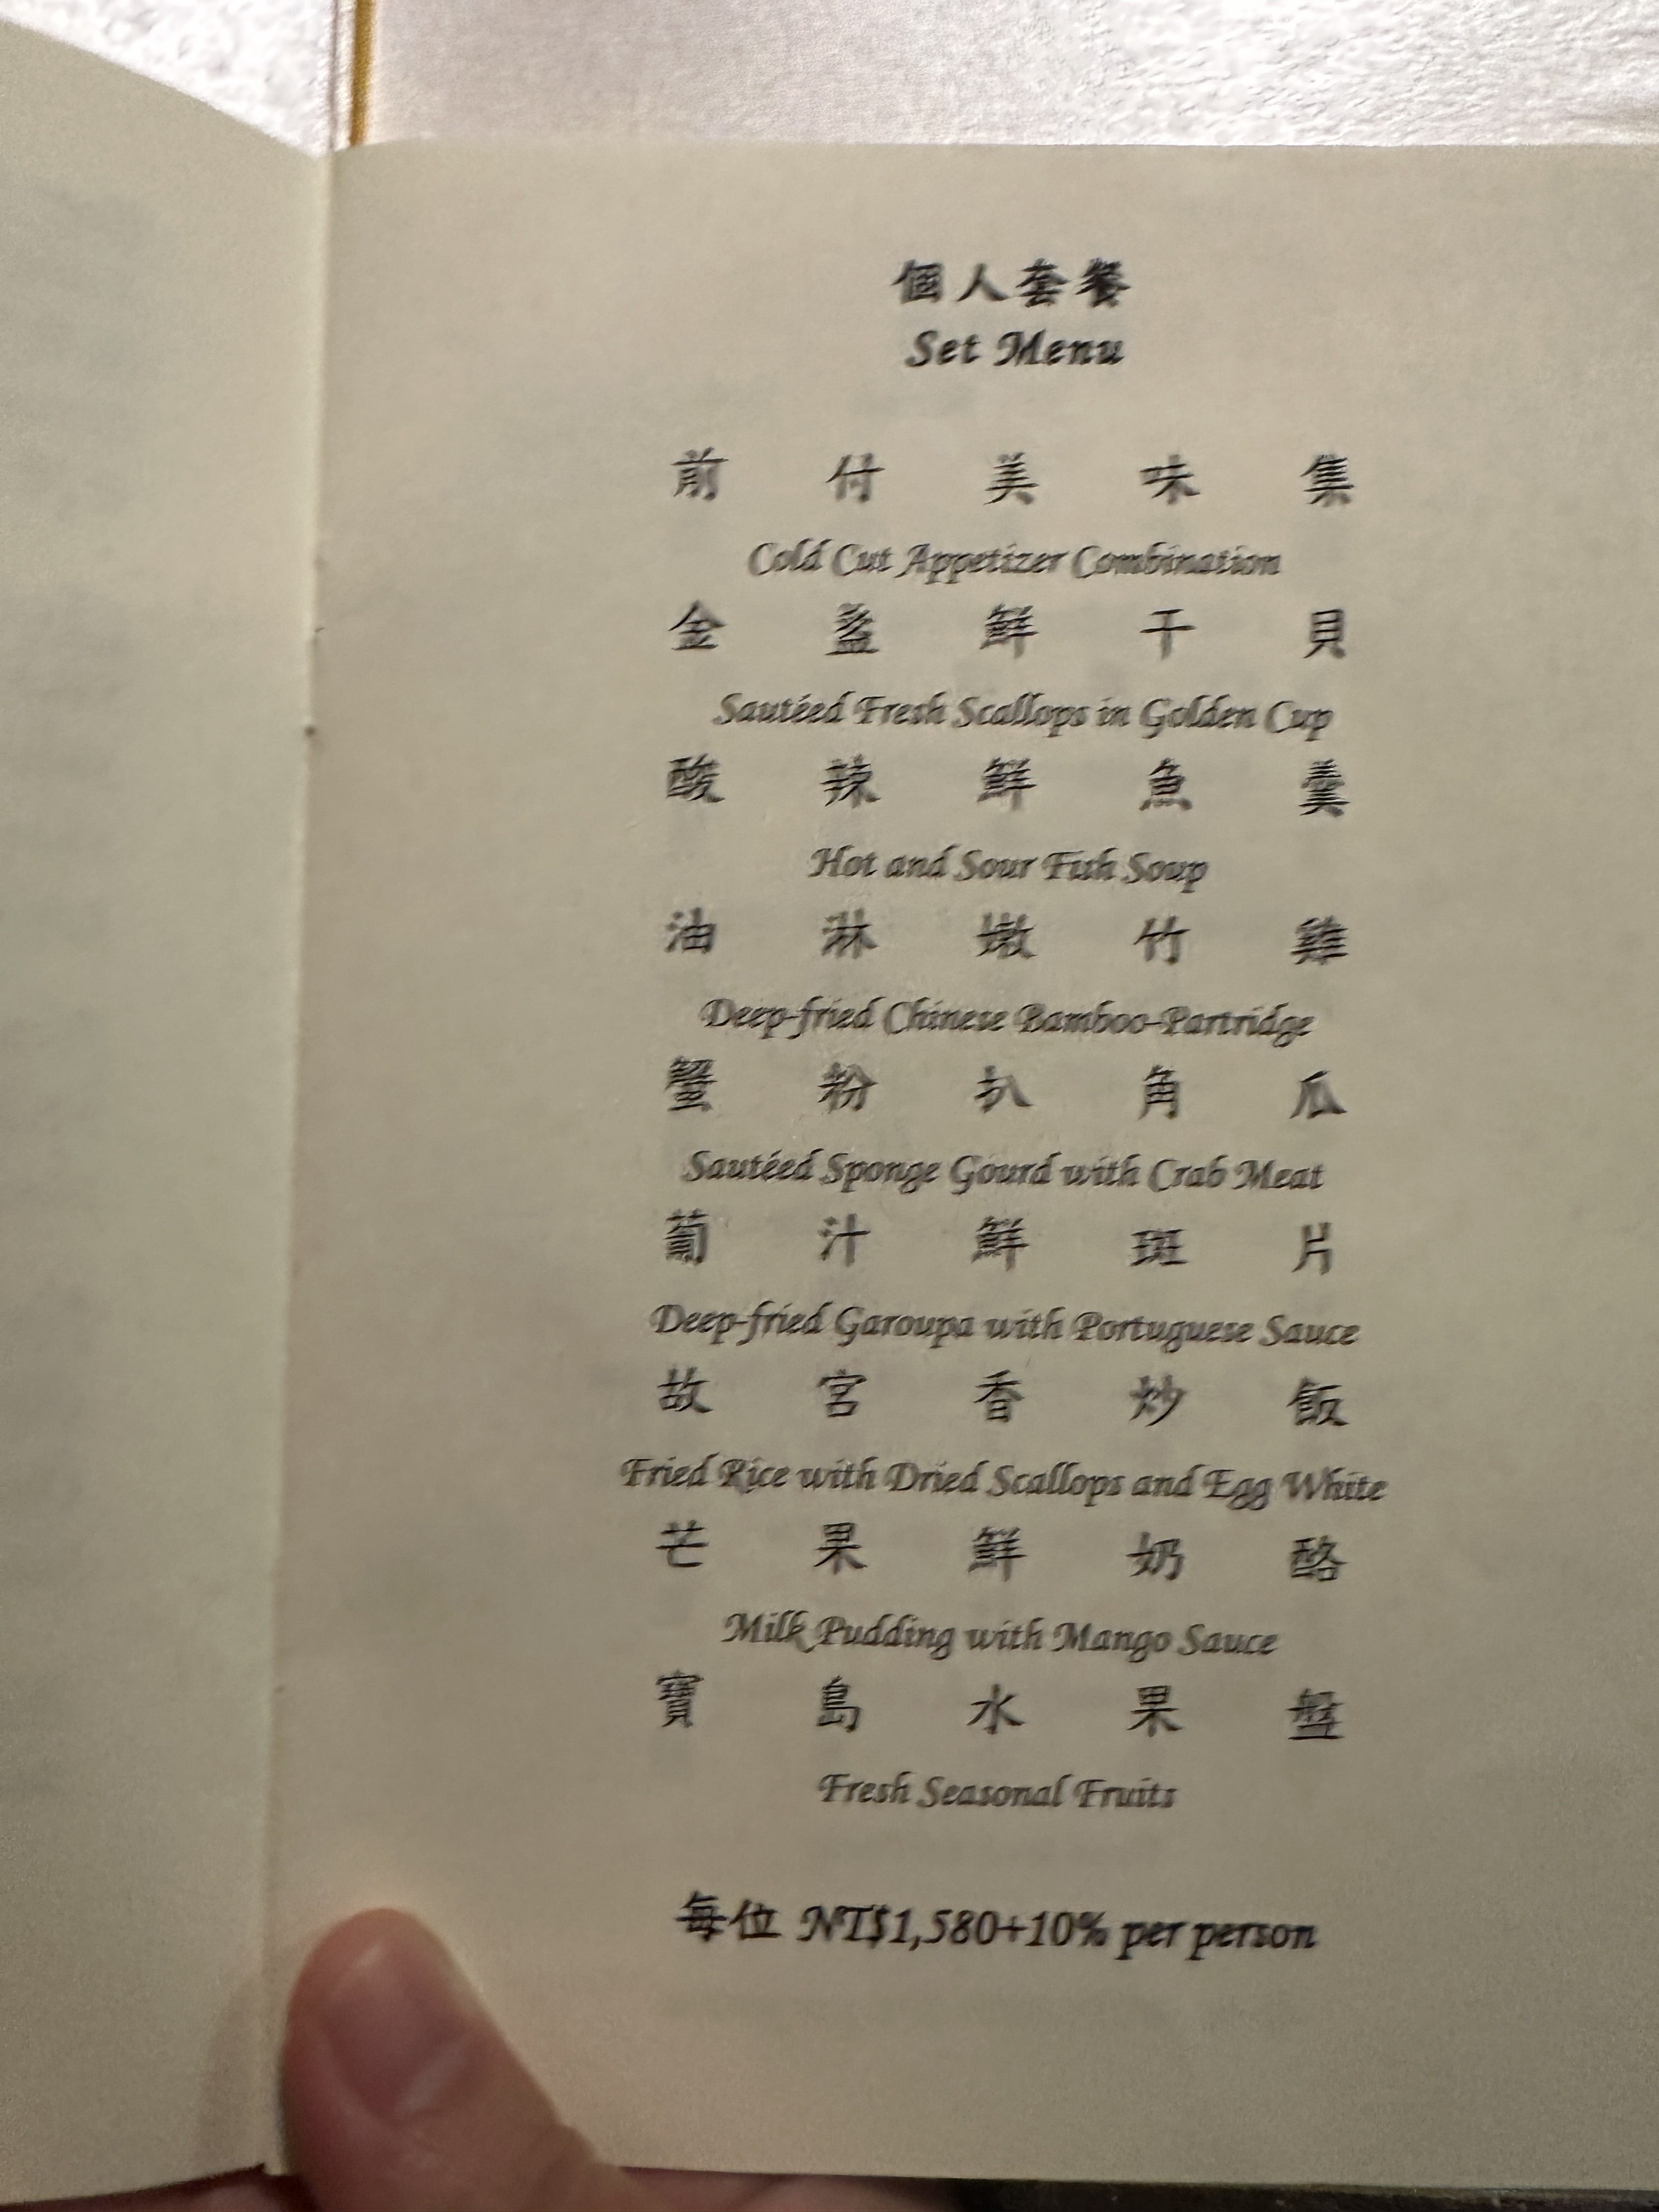 個人套餐
Set Menu
前付美味集
Cold Cut Appetizer Combination
金盞鮮干貝
Sautéed Fresh Scallops in Golden Cup
酸辣鮮魚羹
Hot and Sour Fish Soup
油淋嫩竹雞
Deep-fried Chinese Bamboo-Partridge
蟹粉扒角瓜
Sautéed Sponge Gourd with Crab Meat
葡汁鮮斑片
Deep-fried Garoupa with Portuguese Sauce
故宮香炒飯
Fried Rice with Dried Scallops and Egg White
芒果鮮奶酪
Milk Pudding with Mango Sauce
寶島水果盤
Fresh Seasonal Fruits
每位 NT$1,580+10% per person